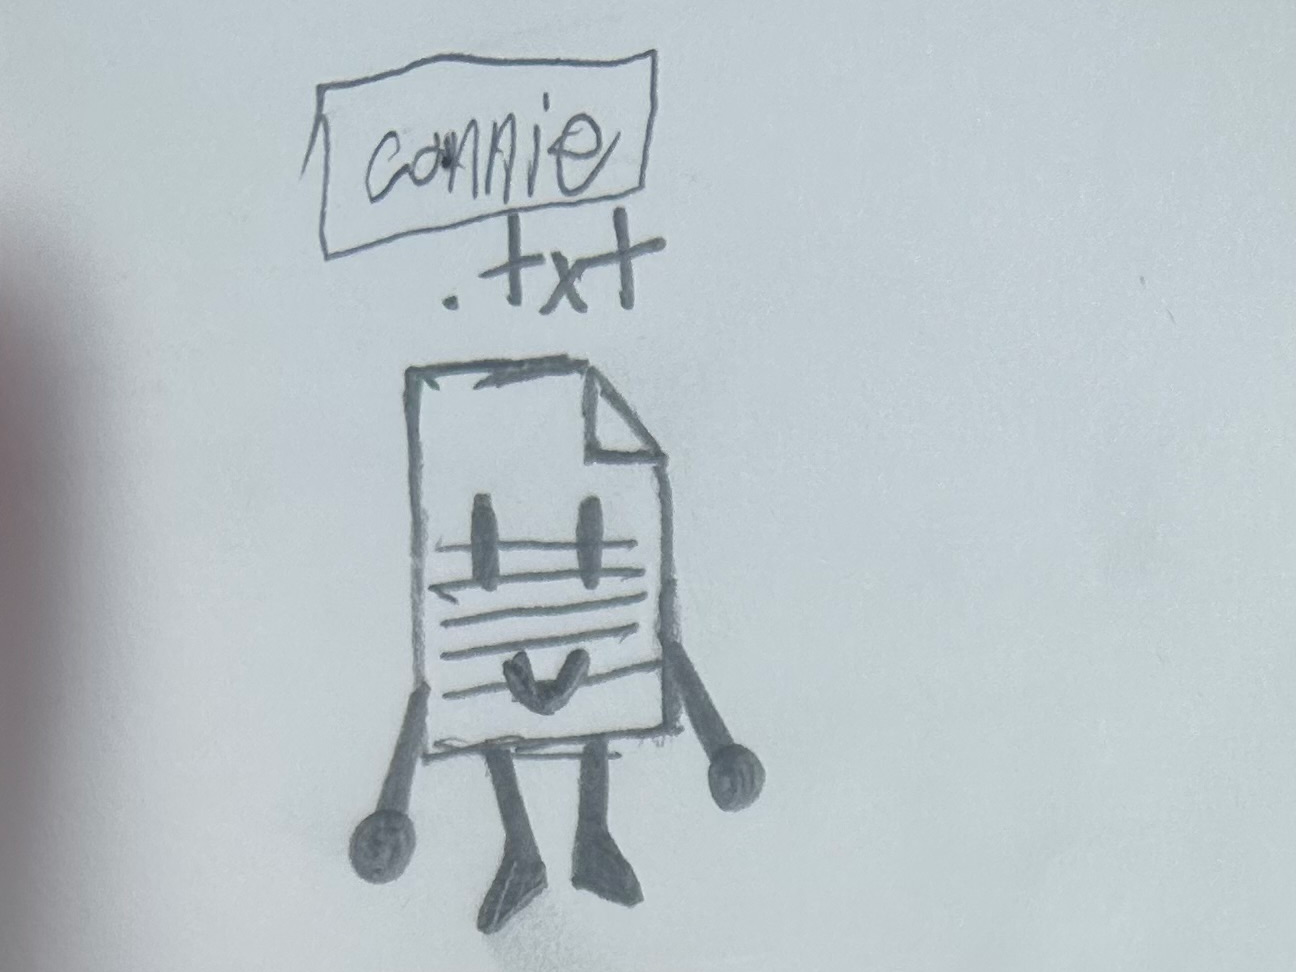 connie
.txt